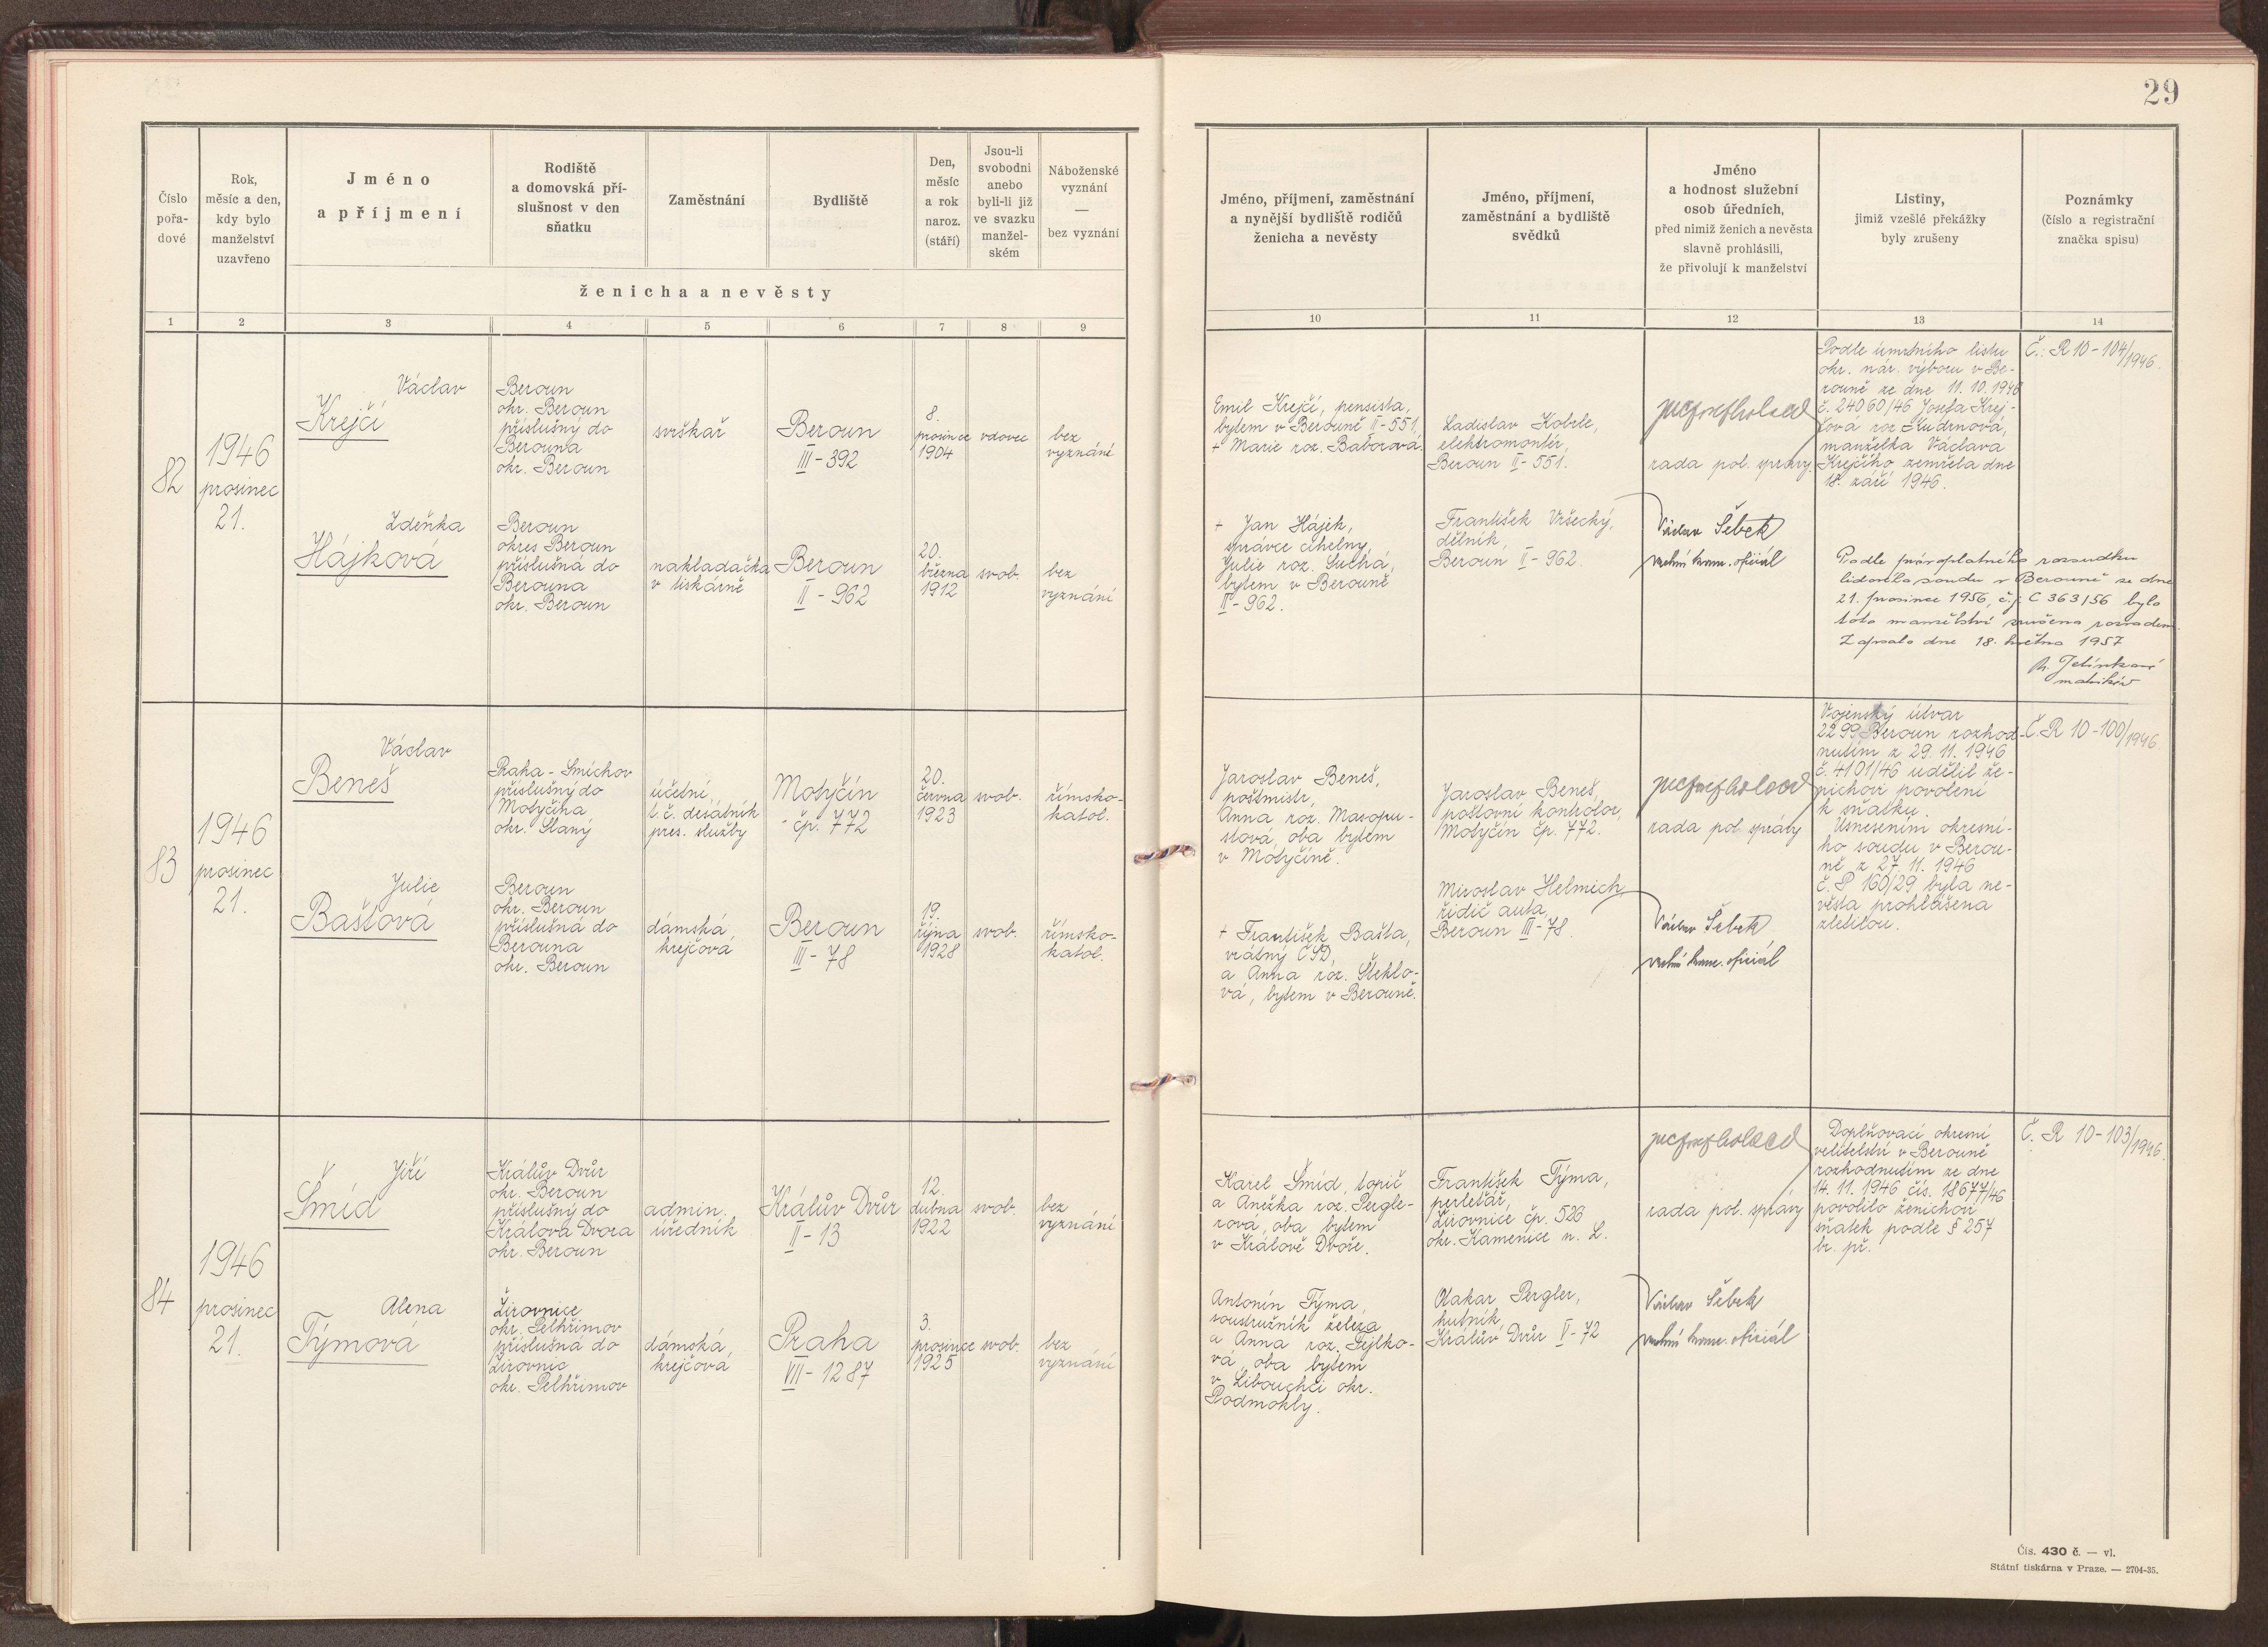 29
Číslo
pořa-
dové
Rok,
měsíc a den,
kdy bylo
manželství
uzavřeno
Jméno
a příjmení
Rodiště
a domovská pří-
slušnost v den
sňatku
Zaměstnání
Bydliště
Den,
měsíc
a rok
naroz.
(stáří)
Jsou-li
svobodni
anebo
byli-li již
ve svazku
manžel-
ském
Náboženské
vyznání
—
bez vyznání
ženicha a nevěsty
Jméno, příjmení, zaměstnání
a nynější bydliště rodičů
ženicha a nevěsty
Jméno, příjmení,
zaměstnání a bydliště
svědků
Jméno
a hodnost služební
osob úředních,
před nimiž ženich a nevěsta
slavně prohlásili,
že přivolují k manželství
Listiny,
jimiž vzešlé překážky
byly zrušeny
Poznámky
(číslo a registrační
značka spisu)
1 2 3 4 5 6 7 8 9 10 11 12 13 14
82
1946
prosinec
21.
Václav
Krejčí
Beroun
okr. Beroun
příslušný do
Berouna
okr. Beroun
svrškař
Beroun
III - 392
8.
prosince
1904
vdovec
bez
vyznání
Zdeňka
Hájková
Beroun
okres Beroun
příslušná do
Berouna
okr. Beroun
nakladačka
v tiskárně
Beroun
II - 962
20.
března
1912
svob.
bez
vyznání
Emil Krejčí, pensista,
bytem v Berouně II-551,
+ Marie roz. Baborová.
+ Jan Hájek,
správce cihelny,
Julie roz. Suchá,
bytem v Berouně
II - 962.
Ladislav Kobrle,
elektromontér,
Beroun II - 551.
František Vršecký,
dělník,
Beroun II - 962.
rada pol. správy.
Václav Šebek
vrchní kanc. oficiál
Podle úmrtního listu
okr. nár. výboru v Be-
rouně ze dne 11. 10. 1946
č. 24060/46 Josefa Krej-
čová roz. Kudrnová,
manželka Václava
Krejčího, zemřela dne
18. září 1946.
Č.: R 10 - 104/1946.
Podle pravoplatného rozsudku
lidového soudu v Berouně ze dne
21. prosince 1956, č.j. C 363/56 bylo
toto manželství zrušeno rozvodem.
Zapsáno dne 18. května 1957
Jelínková
83
1946
prosinec
21.
Václav
Beneš
Praha - Smíchov
příslušný do
Motyčína
okr. Slaný
účetní,
t. č. desátník
pres. služby
Motyčín
čp. 772
20.
června
1923
svob.
římsko-
katol.
Julie
Baštová
Beroun
okr. Beroun
příslušná do
Berouna
okr. Beroun
dámská
krejčová
Beroun
III - 78
19.
října
1928
svob.
římsko-
katol.
Jaroslav Beneš,
poštmistr,
Anna roz. Masopu-
stová, oba bytem
v Motyčíně.
+ František Bašta,
vrátný ČSD,
a Anna roz. Šteklo-
vá, bytem v Berouně.
Jaroslav Beneš,
poštovní kontrolor,
Motyčín čp. 772.
Miroslav Helmich,
řidič auta,
Beroun III - 78.
rada pol. správy
Václav Šebek
vrchní kanc. oficiál
Vojenský útvar
2299 Beroun rozhod-
nutím z 29. 11. 1946
č. 4101/46 udělil že-
nichovi povolení
k sňatku.
Usnesením okresní-
ho soudu v Berou-
ně z 27. 11. 1946
č. P 160/29 byla ne-
věsta prohlášena
zletilou.
Č. R 10 - 100/1946.
84
1946
prosinec
21.
Jiří
Šmíd
Králův Dvůr
okr. Beroun
příslušný do
Králova Dvora
okr. Beroun
admin.
úředník
Králův Dvůr
II - 13
12.
dubna
1922
svob.
bez
vyznání
Alena
Týmová
Žirovnice
okr. Pelhřimov
příslušná do
Žirovnic
okr. Pelhřimov
dámská
krejčová
Praha
VII - 1287
3.
prosince
1925
svob.
bez
vyznání
Karel Šmíd, topič
a Anežka roz. Pergle-
rová, oba bytem
v Králově Dvoře.
Antonín Týma,
soustružník železa
a Anna roz. Fejlko-
vá, oba bytem
v Libouchci okr.
Podmokly.
František Týma,
perleťář,
Žirovnice čp. 526
okr. Kamenice n. L.
Otakar Pergler,
hutník,
Králův Dvůr V - 72
rada pol. správy
Václav Šebek
vrchní kanc. oficiál
Doplňovací okresní
velitelství v Berouně
rozhodnutím ze dne
14. 11. 1946 čís. 18677/46
povolilo ženichovi
sňatek podle § 257
br. př.
Č. R 10 - 103/1946.
Čís. 430 č. — vl.
Státní tiskárna v Praze. — 2704-35.